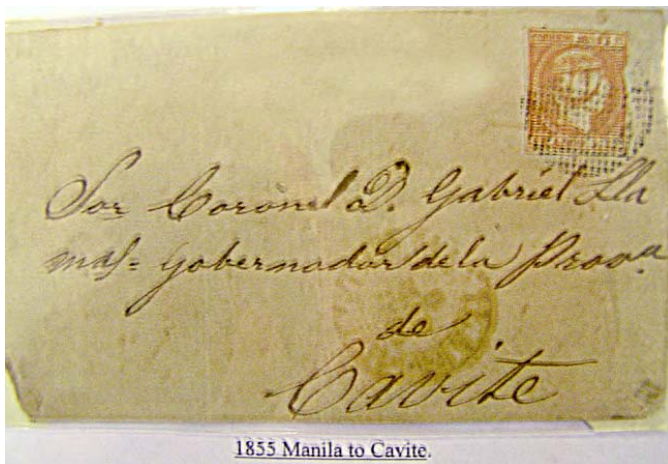 Sor Coronel D. Gabriel Lla
mas= Gobernador de la Prov.a
de
Cavite
1855 Manila to Cavite.